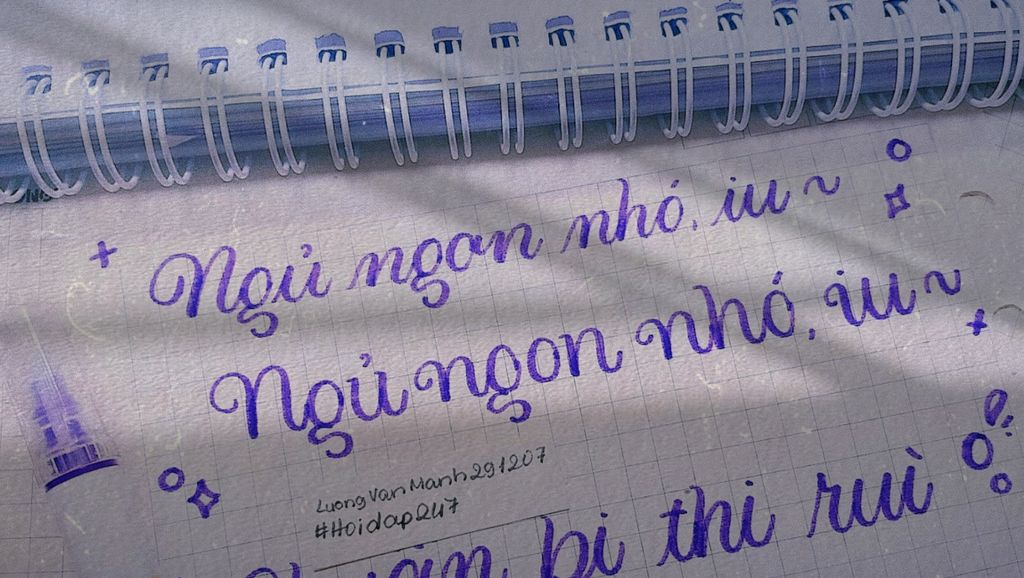 Ngủ ngon nhó, iu ~
Ngủ ngon nhó, iu ~
LuongVanManh291207
#Hoidap247
bi thi ruì